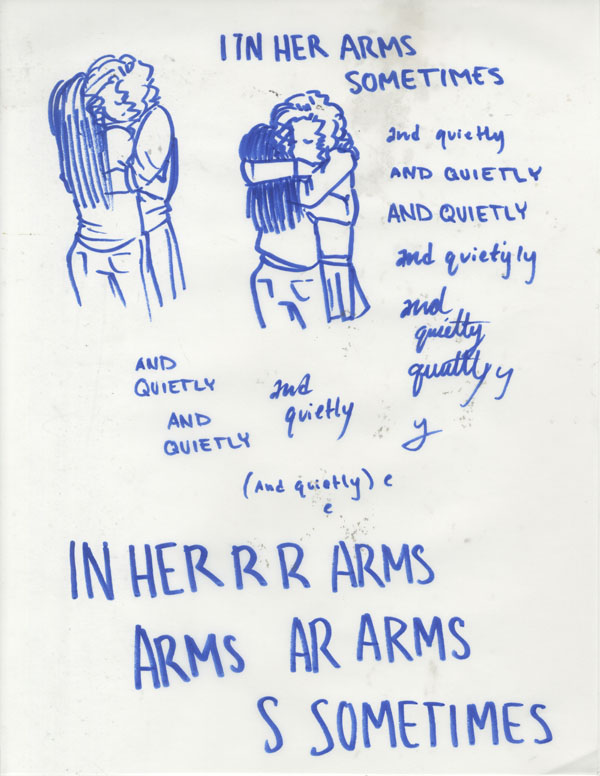 I IN HER ARMS
SOMETIMES
and quietly
AND QUIETLY
AND QUIETLY
and quietyly
and
quietty
y
y
AND
QUIETLY
AND
QUIETLY
and
quietly
(And quietly) e
e
IN HER R R ARMS
ARMS AR ARMS
S SOMETIMES